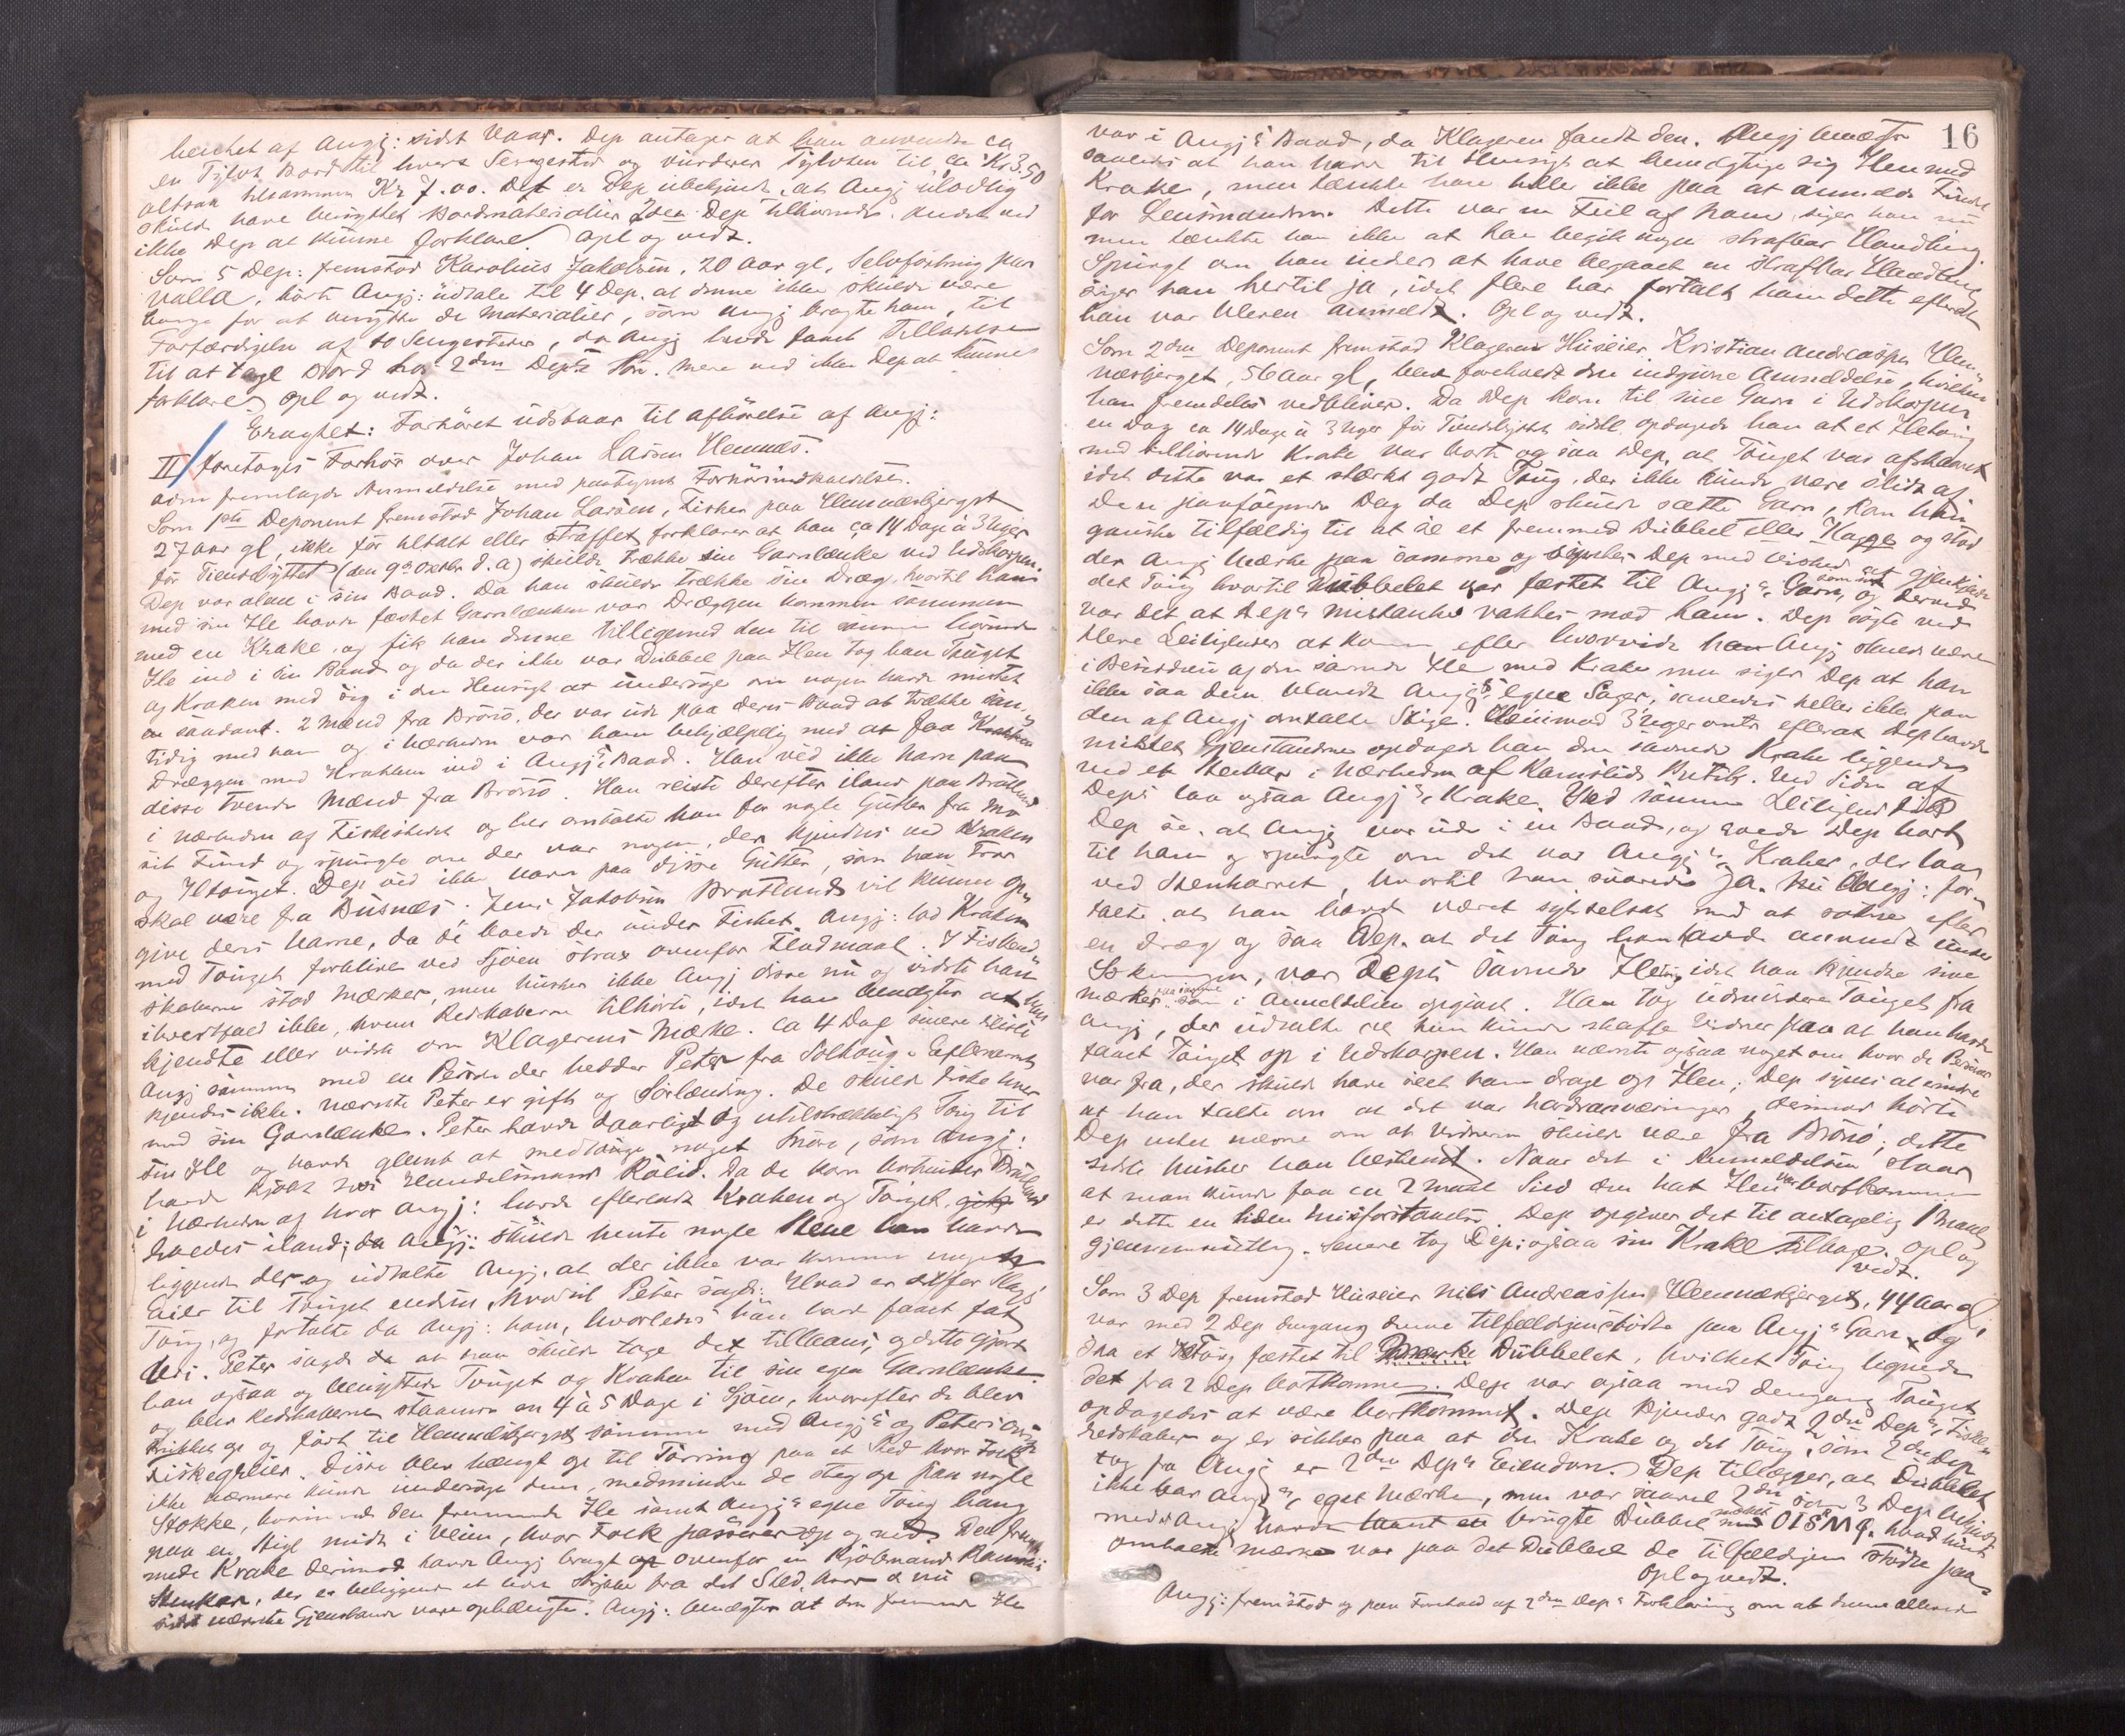 af Angj: sidst Vaar. Dep antager at han anvendte ca
en Tylvt Bord til hvert Sengested og vurderer Tylvten til ca Kr 3.50
altsaa tilsammen Kr 7.00. Det er Dep ubekjendt, at Angj ulovlig
skulde have benyttet Bordmaterialier 2den Dep tilhørende. Andet ved
ikke Dep at kunne forklare. Opl og vedt.
Som 5 Dep: fremstod Karolius Jakobsen, 20 Aar gl, Selvfostring paa
Valla, hørte Angj: udtale til 4 Dep. at denne ikke skulde være
bange for at benytte de Materialier, som Angj bragte ham, til
Forfærdigelse af to Sengesteder, da Angj havde faaet Tilladelse
til at tage Bord hos 2den Dep's Søn. Mere ved ikke Dep at kunne
forklare. Opl og vedt.
Eragtet: Forhøret udsbaar til afhørelse af Angj:
II/ foretoges Forhør over Johan Larsen Hemnes.
Adm fremlagde Anmeldelse med paategnet Forhørsindkaldelse.
Som 1ste Deponent fremstod Johan Larsen, Fisker paa Hemnæsbjerget
27 Aar gl, ikke før tiltalt eller straffet, forklarer at han ca 14 Dage à 3 Uger
før Tiendbyttet (den 9de Oktbr d.a) skulde trække sin Garnlænke ved Udskarpen.
Dep var alene i sin Baad. Da han skulde trække sin Dræg, hvortil hans
med sin Ile havde fæstet Garnlænken var Dræggen kommen sammen
med en Krake, og fik han denne tilligemed den til samme hørende
Ile ind i sin Baad og da der ikke var Dubbel paa Ilen tog han Touget
og Kraken med sig i den Hensigt at undersøge om nogen havde mistet
en saadant. 2 Mænd fra Brönö, der var ude paa deres Baad at trække sam-
tidig med ham og i nærheden var ham behjælpelig med at faa Krakken
Dræggen med Krakken ind i Angj's Baad. Han ved ikke Navn paa
disse tvende Mænd fra Brönö. Han reiste derefter iland paa Bratland
i nærheden af Fiskestedet og her omtalte han for nogle Gutter fra Mo
sit Fund og spurgte om der var nogen, der kjendtes ved Kraken
og Iletouget. Dep ved ikke Navn paa disse Gutter, som han tror
skal være fra Busnæs; Jens Jakobsen Bratland vil kunne op-
give deres Navne, da de boede der under Fisket. Angj: lod Kraken
med Touget forblive ved Sjøen strax ovenfor Flodmaal. I Fiskered-
skaberne stod Mærker, men husker ikke Angj disse nu og vidste han
ihvertfald ikke, hvem Redskaberne tilhørte, idet han benægter at han
kjendte eller vidste om Klagerens Mærke. ca 4 Dage senere reiste
Angj sammen med en Person der hedder Peter fra Solhaug. Efternavnet
kjendes ikke. Nævnte Peter er gift og Sørlænding. De skulde fiske hver
med sin Garnlænke. Peter havde daarligt og utilstrækkeligt Toug til
sin Ile og havde glemt at medbringe noget Snøre, som Angj:
havde kjøbt hos Handelsmand Rølid. Da de kom herunder Bratland
i nærheden af hvor Angj: havde efterladt Kraken og Touget, gik
baades iland; da Angj: skulde hente nogle Stene han havde
liggende der og udtalte Angj. at der ikke var kommen nogen
Eiér til Touget endnu, hvortil Peter sagde: Hvad er det for Slags
Toug, og fortalte da Angj: ham, hvorledes han havde faaet fat
deri. Peter sagde da at han skulde tage det tillaans, og dette gjorde
han ogsaa og benyttede Touget og Kraken til sin egen Garnlænke
og blev Redskaberne staaende en 4 à 5 Dage i Sjøen, hvorefter de blev
trukket op og ført til Hemnæsbjerget sammen med Angj's og Peters øvrige
Fiskegreier. Disse blev hængt op til Tørring paa et Sted hvor Folk
ikke nærmere kunde undersøge dem, medmindre de steg op paa nogle
Stokke, hvorimod den fremmede Ile samt Angj's egne Toug hang
paa en Stige midt i Veien, hvor Folk passerer op og ned. Den frem-
mede Krake derimod havde Angj bragt op ovenfor en Kjøbmand
Stenkar, der er beliggende et lidet Stykke fra det Sted, hvor de nu
sidst nævnte Gjenstande vare ophængte. Angj: benægter at den fremmede Ile
16
var i Angj's Baad, da Klageren fandt den. Angj benægter
saaledes at han havde til Hensigt at bemægtige sig Ilen med
Krake, men tænkte han heller ikke paa at anmelde Fundet
for Lensmanden. Dette var en Feil af ham siger han nu
men tænkte han ikke at han begik nogen strafbar Handling.
Spurgt om han indser at have begaaet en strafbar Handling
siger han hertil ja, idet flere har fortalt ham dette efterat
han var bleven anmeldt. Opl og vedt.
Som 2den Deponent fremstod Klageren Huseier Kristian Andreassen Hem-
næsbjerget, 56 Aar gl, blev foreholdt den indgivne Anmeldelse, hvilken
han fremdeles vedbliver. Da Dep kom til sine Garn i Udskarpen
en Dag ca 14 Dage à 3 Uger før Tiendbyttet sidstl. opdagede han at et Iletoug
med tilhørende Krake var borte og saa Dep, at Touget var afskaaret
idet dette var et stærkt godt Toug, der ikke kunde være slidt af.
Den paafølgende Dag da Dep skulde sætte Garn, kom han
ganske tilfældig til at se et fremmed Dubbel eller Kagge og stod
der Angj Mærke paa samme og syntes Dep med Vished at gjenkjende
det Toug hvortil Dubbelet var fæstet til Angj's Garn, som sit og derved
var det at Dep's Mistanke vaktes mod ham. Dep søgte ved
flere Leiligheder at komme efter hvorvidt han Angj skulde være
i Besiddelse af den savnede Ile med Krake men siger Dep at han
ikke saa dem blandt Angj's egne Sager, saaledes heller ikke paa
den af Angj omtalte Stige. Henimod 3 Uger omtr efterat Dep havde
mistet Gjenstandene opdagede han den savnede Krake liggende
ved et Stenkar i Nærheden af Ramslids Butik. Ved Siden af
Dep's laa ogsaa Angj's Krake. Ved samme Leilighed fik
Dep se, at Angj var ude i en Baad, og roede Dep bort
til ham og spurgte om det var Angj's Kraker, der laa
ved Stenkarret, hvortil han svarede ja. Nu Angj: for-
talte, at han havde været sysselsat med at sokne efter
en Dræg og saa Dep. at det Toug han havde anvendt under
Sokningen, var Dep's savnede Iletoug idet han kjendte sine
Mærker paa samme som i Anmeldelsen opgivet. Han tog udenvidere Touget fra
Angj, der udtalte at han kunde skaffe Vidner paa at han havde
faaet Touget op i Udskarpen. Han nævnte ogsaa noget om hvor de Personer
var fra, der skulde have seet ham drage op Ilen; Dep synes at erindre
at han talte om at det var Nordranværinger, derimod hørte
Dep intet nævne om at Vidnerne skulde være fra Brönö; dette
sidste husker han bestemt. Naar det i Anmeldelsen staar
at man kunde faa en 2 Maal Sild om hat Ilen var bortkommen
er dette en liden Misforstaaelse. Dep opgiver det til antagelig 1 Maal
gjennemsnitlig. Senere tog Dep: ogsaa sin Krake tilbage. Opl og
vedt.
Som 3 Dep fremstod Huseier Nils Andreassen Hemnæsbjerget, 44 Aar gl,
var med 2 Dep dengang denne tilfældigvis stødte paa Angj's Garn og
saa et Iletoug fæstet til Dubbelet, hvilket Toug lignede
det fra 2 Dep bortkomne. Dep var ogsaa med dengang Touget
opdagedes at være bortkommet. Dep kjender godt 2den Dep's Fiske-
redskaber og er sikker paa at den Krake og det Toug, som 2den Dep
tog fra Angj er 2den Dep's Eiendom. Dep tillægger, at Dubbelet
ikke bar Angj's eget Mærke, men var saavel 2den som 3 Dep bekjendt
med at Angj havde brugte Dubbel mærket OISMG. hvad
omtalte Mærke var paa det Dubbel de tilfældigvis stødte paa.
Opl og vedt.
Angj: fremstod og paa Forhold af 2den Dep's Forklaring om at denne allerede